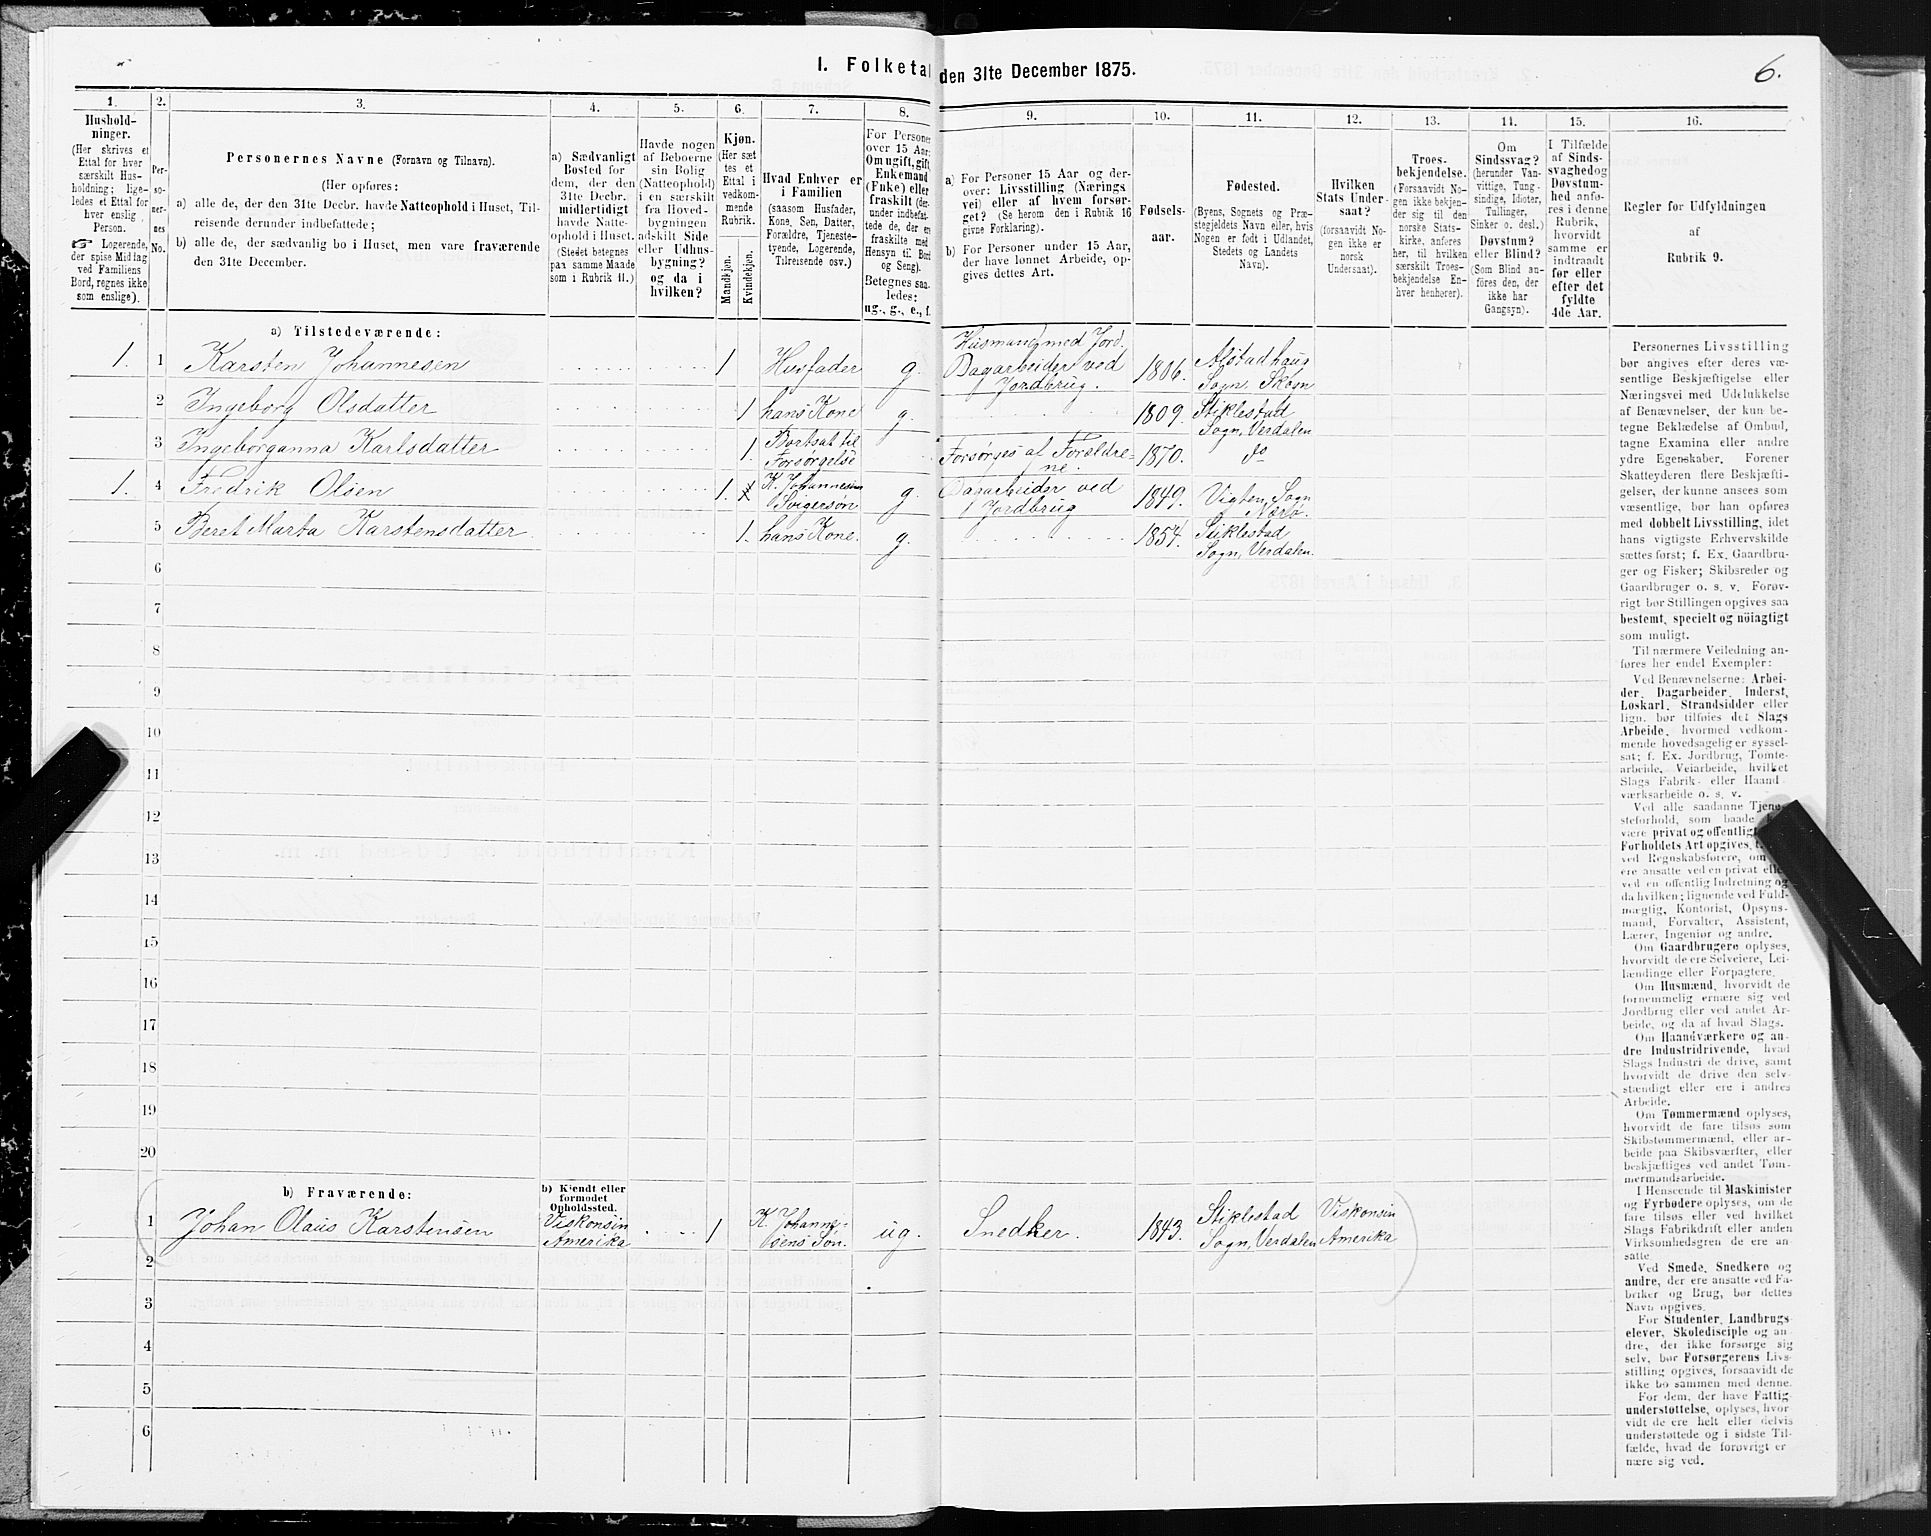 1. Folketal den 31te December 1875.
6.
1. 2. 3. 4. 5. 6. 7. 8. 9. 10. 11. 12. 13. 14. 15. 16.
Hushold-
ninger.
(Her skrives et
Ettal for hver
særskilt Hus-
holdning; lige-
ledes et Ettal for
hver enslig
Person.
☞ Logerende,
der spise Middag
ved Familiens
Bord, regnes ikke
som enslige).
Per-
so-
ner-
nes
No.
Personernes Navne (Fornavn og Tilnavn).
(Her opføres:
a) alle de, der den 31te Decbr. havde Natteophold i Huset, Til-
reisende derunder indbefattede;
b) alle de, der sædvanlig bo i Huset, men vare fraværende
den 31te December.
a) Sædvanligt
Bosted for
dem, der den
31te Decbr.
midlertidigt
havde Natte-
ophold i Huset.
(Stedet betegnes
paa samme Maade
som i Rubrik 11.)
Havde nogen
af Beboerne
sin Bolig
(Natteophold)
i en særskilt
fra Hoved-
bygningen
adskilt Side
eller Udhus-
bygning?
og da i
hvilken?
Kjøn.
(Her sæt
tes et
Ettal i
vedkom-
mende
Rubrik.
Mandkjøn.
Kvindekjøn.
Hvad Enhver er
i Familien
(saasom Husfader,
Kone, Søn, Datter,
Forældre, Tjeneste-
tyende, Logerende,
Tilreisende osv.)
For Personer
over 15 Aar:
Om ugift, gift,
Enkemand
(Enke) eller
fraskilt (der-
under indbefat-
tede de, der er
fraskilte med
Hensyn til Bord
og Seng).
Betegnes saa-
ledes:
ug., g., e., f.
a) For Personer 15 Aar og der-
over: Livsstilling (Nærings
vei) eller af hvem forsør-
get? (Se herom den i Rubrik 16
givne Forklaring).
b) For Personer under 15 Aar,
der have lønnet Arbeide, op-
gives dettes Art.
Fødsels-
aar.
Fødested.
(Byens, Sognets og Præ-
stegjeldets Navn eller, hvis
Nogen er født i Udlandet,
Stedets og Landets
Navn).
Hvilken
Stats Under-
saat?
(forsaavidt No-
gen ikke er
norsk
Undersaat).
Troes-
bekjendelse.
(Forsaavidt No-
gen ikke bekjen-
der sig til den
norske Stats-
kirke, anføres
her, til hvilken
særskilt Troes-
bekjendelse En-
hver henhører).
Om
Sindssvag?
(herunder Van-
vittige, Tung-
sindige, Idioter,
Tullinger,
Sinker o. desl.)
Døvstum?
eller Blind?
(Som Blind an-
føres den, der
ikke har
Gangsyn).
I Tilfælde
af Sinds-
svaghed og
Døvstum-
hed anfø-
res i denne
Rubrik,
hvorvidt
samme er
indtraadt
før eller
efter det
fyldte
4de Aar.
Regler for Udfyldningen
af
Rubrik 9.
a) Tilstedeværende:
1. 1 Karsten Johannesen 1 Husfader g. Husmand med Jord. Dagarbeider ved Jordbrug. 1806. Alstadhaug Sogn, Skogn
2 Ingeborg Olsdatter 1 hans Kone g. 1809. Stiklestad Sogn, Verdalen
3 Ingeborganna Karlsdatter 1. Bortsat til Forsørgelse Forsørges af Forældrene. 1870. do
1. 4 Fredrik Olsen 1. K. Johannesens Svigersøn g. Dagarbeider ved Jordbrug 1849. Vigten, Sogn Nærø.
5 Beret Marta Karstensdatter. 1. hans Kone. g. 1854. Stiklestad Sogn, Verdalen.
6
7
8
9
10
11
12
13
14
15
16
17
18
19
20
b) Fraværende:
b) Kjendt eller
formodet
Opholdssted.
1 Johan Olaus Karstensen Viskonsin Amerika 1 K. Johannesens Søn. ug. Snedker. 1843. Stiklestad Sogn, Verdalen Viskonsin Amerika
2
3
4
5
6
Personernes Livsstilling
bør angives efter deres væ-
sentlige Beskjæftigelse eller
Næringsvei med Udelukkelse
af Benævnelser, der kun be-
tegne Beklædelse af Ombud,
tagne Examina eller andre
ydre Egenskaber. Forener
Skatteyderen flere Beskjæfti-
gelser, der kunne ansees som
væsentlige, bør han opføres
med dobbelt Livsstilling, idet
hans vigtigste Erhvervskilde
sættes først; f. Ex. Gaardbru-
ger og Fisker; Skibsreder og
Gaardbruger o. s. v. Forøv-
rigt bør Stillingen opgives saa
bestemt, specielt og nöiagtigt
som muligt.
Til nærmere Veiledning an-
føres her endel Exempler:
Ved Benævnelserne: Arbei-
der, Dagarbeider, Inderst,
Løskarl, Strandsidder eller
lign. bør tilføies det Slags
Arbeide, hvormed vedkom-
mende hovedsagelig er syssel-
sat; f. Ex. Jordbrug, Tomte-
arbeide, Veiarbeide, hvilket
Slags Fabrik- eller Haand-
værksarbeide o. s. v.
Ved alle saadanne Tjene-
steforhold, som baade
være privat og offentligt
Forholdets Art opgives,
ved Regnskabsførere, om
ere ansatte ved en privat eller
ved en offentlig Indretning og
da hvilken; lignende ved Fuld-
mægtig, Kontorist, Opsyns-
mand, Forvalter, Assistent,
Lærer, Ingeniør og andre.
Om Gaardbrugere oplyses,
hvorvidt de ere Selveiere, Lei-
lændinge eller Forpagtere.
Om Husmænd, hvorvidt de
fornemmelig ernære sig ved
Jordbrug eller ved andet Ar-
beide, og da af hvad Slags.
Om Haandværkere og an-
dre Industridrivende, hvad
Slags Industri de drive, samt
hvorvidt de drive den selv-
stændigt eller ere i andres
Arbeide.
Om Tømmermænd oplyses,
hvorvidt de fare tilsøs som
Skibstømmermænd, eller ar-
beide paa Skibsværfter, eller
beskjæftiges ved andet Tøm-
mermandsarbeide.
I Henseende til Maskinister
og Fyrbødere oplyses, om de
fare tilsøs eller ved hvilket
Slags Fabrikdrift eller anden
Virksomhedsgren de ere an-
satte
Ved Smede, Snedkere og
andre, der ere ansatte ved Fa-
briker og Brug, bør dettes
Navn opgives.
For Studenter, Landbrugs-
elever, Skoledisciple og an-
dre, der ikke forsørge sig
selv, bør Forsørgerens Livs-
stilling opgives, forsaavidt de
ikke bo sammen med denne.
For dem, der have Fattig-
understøttelse, oplyses, hvor-
vidt de ere helt eller delvis
understøttede og i sidste Til-
fælde, hvad de forøvrigt er
nære sig ved.